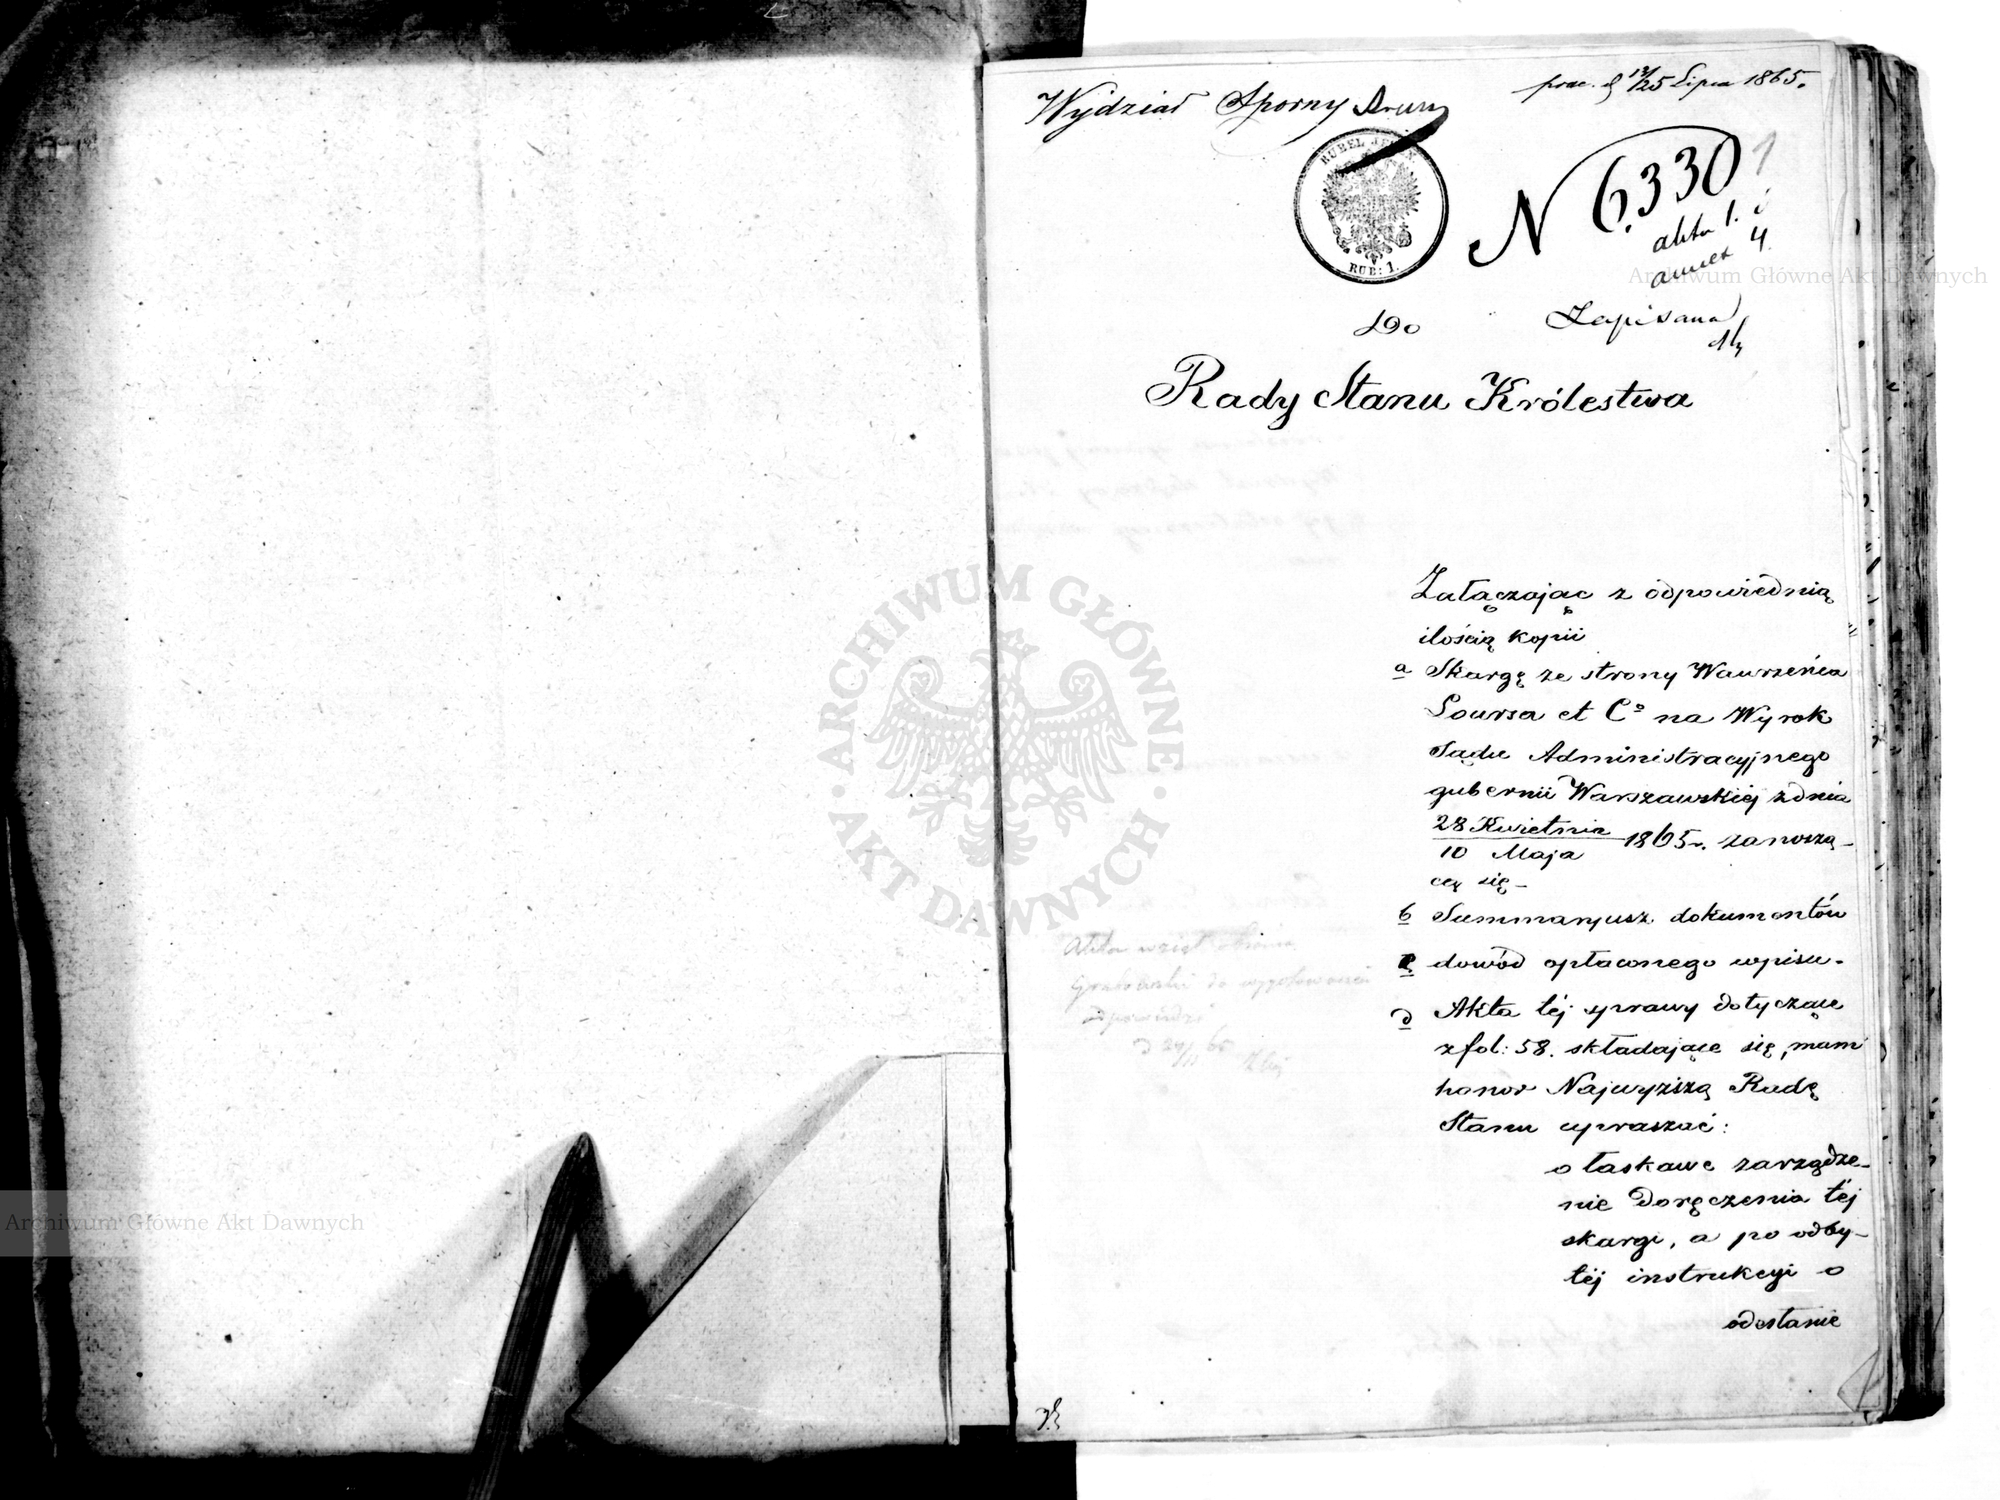 prez. d 13/25 Lipca 1865.
Wydział Sporny
RUBEL JEDEN
RUB: 1.
N 6330
1
akta 1.
annex 4.
Archiwum Główne Akt Dawnych
Zapisana
Do
Rady Stanu Królestwa
Załączając z odpowiednią
ilością kopii
a Skargę ze strony Wawrzeńca
Soursa et Co na Wyrok
Sądu Administracyjnego
gubernii Warszawskiej z dnia
28 Kwietnia
10 Maja 1865 r. zanoszą-
cą się -
b Summaryusz dokumentów
c dowód opłaconego wpisu.
d Akta téj sprawy dotyczące
z fol: 58. składające się, mam
honor Najwyższą Radę
Stanu upraszać:
o łaskawe zarządze-
nie doręczenia téj
skargi, a po odby-
téj instrukcyi o
odesłanie
Akta wziął
Grabowski do wygotowania
odpowiedzi
ARCHIWUM GŁÓWNE
AKT DAWNYCH
Archiwum Główne Akt Dawnych